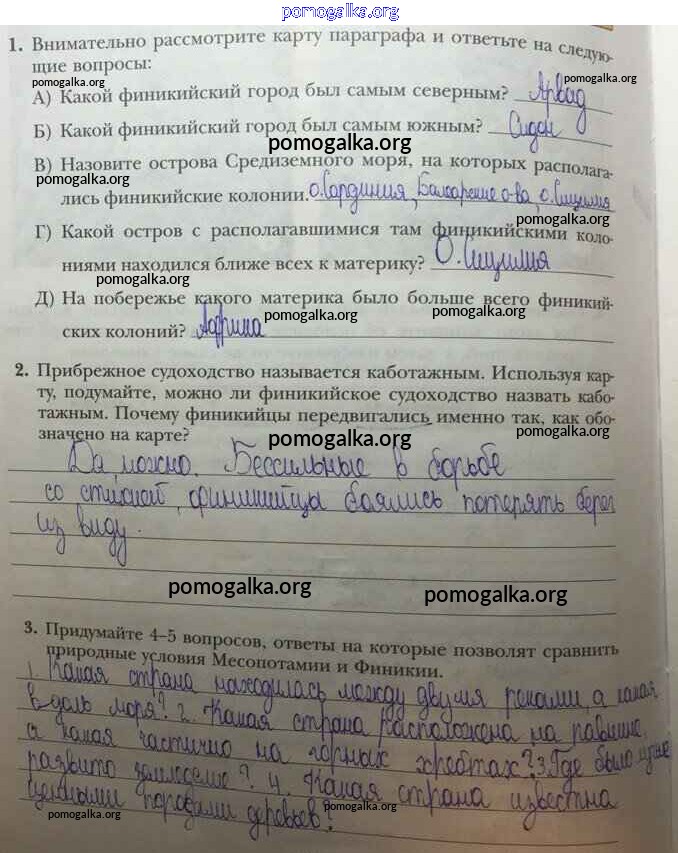 pomogalka.org
1. Внимательно рассмотрите карту параграфа и ответьте на следую-
щие вопросы:
pomogalka.org
pomogalka.org
А) Какой финикийский город был самым северным? Арвад
Б) Какой финикийский город был самым южным? Сидон
pomogalka.org
В) Назовите острова Средиземного моря, на которых располага-
pomogalka.org
лись финикийские колонии. о. Сардиния, Балеарские о-ва, о. Сицилия
pomogalka.org
Г) Какой остров с располагавшимися там финикийскими коло-
ниями находился ближе всех к материку? О. Сицилия
pomogalka.org
Д) На побережье какого материка было больше всего финикий-
pomogalka.org
pomogalka.org
ских колоний? Африка
2. Прибрежное судоходство называется каботажным. Используя кар-
ту, подумайте, можно ли финикийское судоходство назвать кабо-
тажным. Почему финикийцы передвигались именно так, как обо-
значено на карте?
pomogalka.org
pomogalka.org
Да, можно. Бессильные в борьбе
со стихией, финикийцы боялись потерять берег
из виду.
pomogalka.org
pomogalka.org
3. Придумайте 4–5 вопросов, ответы на которые позволят сравнить
природные условия Месопотамии и Финикии.
1. Какая страна находилась между двумя реками, а какая
вдоль моря? 2. Какая страна расположена на равнине,
а какая частично на горных хребтах? 3. Где было
развито земледелие? 4. Какая страна известна
ценными породами деревьев?
pomogalka.org
pomogalka.org